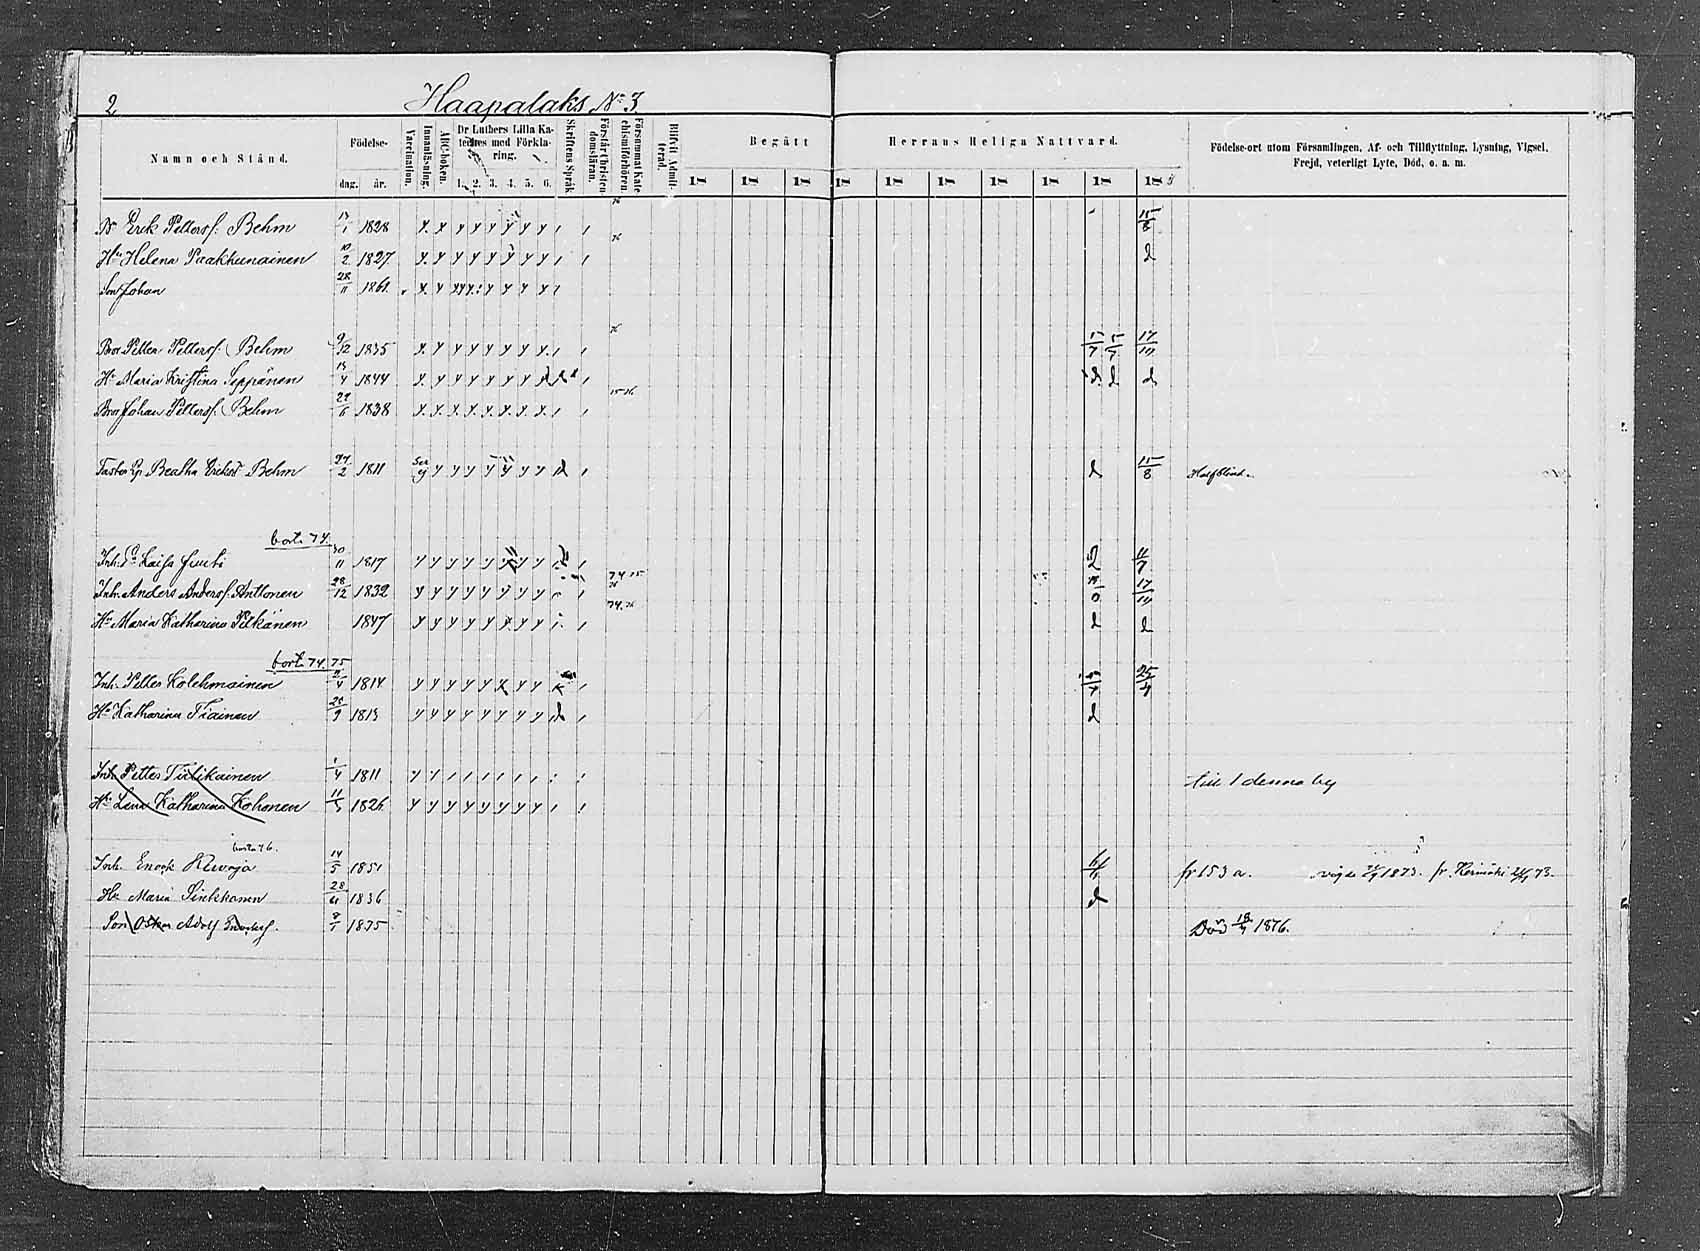 2
Haapalaks № 3
Namn och Stånd.
Födelse-
dag. år.
Vaccination.
Innanläsning.
ABC-boken.
Dr Luthers Lilla Kateches med Förklaring.
1. 2. 3. 4. 5. 6.
Skriftens Språk
Förstår Christendomsläran.
Försummat Katechismiförhören.
Blifvit Admitterad.
Begått Herrans Heliga Nattvard.
18 18 18 18 18 18 18 18 18 18
Födelse-ort utom Församlingen, Af- och Tillflyttning, Lysning, Vigsel, Frejd, veterligt Lyte, Död, o. a. m.
Erik Petterss. Behm 1828 15/8
Hu Helena Paakkunainen 10/2 1827 d
Son Johan 28/11 1861
Bror Petter Petterss. Behm 9/12 1835 17/10
Hu Maria Kristina Seppänen 1844 d d d
Bror Johan Petterss. Behm 1838 15 76
Beatha Ericksd. Behm 24/2 1811 d 15/8 Halfblind.
borta 74.
Inh. Kaisa Juuti 30/11 1817
Inh. Anders Anderss. Anttonen 28/12 1832 74 75 17/10
Hu Maria Katharina Pitkänen 1847 74. 76 d d
borta 74. 75
Inh. Petter Kolehmainen 1814 25/4
Hu Katharina Tiainen 1813 d
Inh. Petter Tiilikainen 1/4 1811 till 1 denna by
Hu Lena Katharina Kohonen 1826
borta 76.
Inh. Enock Kuvaja 14/5 1851 fr 153 a. 1873. fr. Kerimäki 73.
Hu Maria Sinkkonen 1836 d
Son Oskar Adolf Enockss. 1875 Död 18/4 1876.